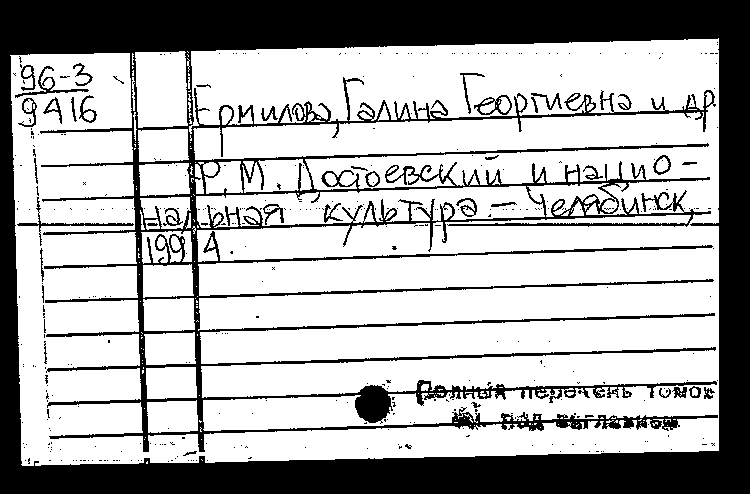 96-3
9416
Ермилова, Галина Георгиевна и др.
Ф. М. Достоевский и нацио-
нальная культура - Челябинск,
1994.
Полный перечень томов
под заглавием